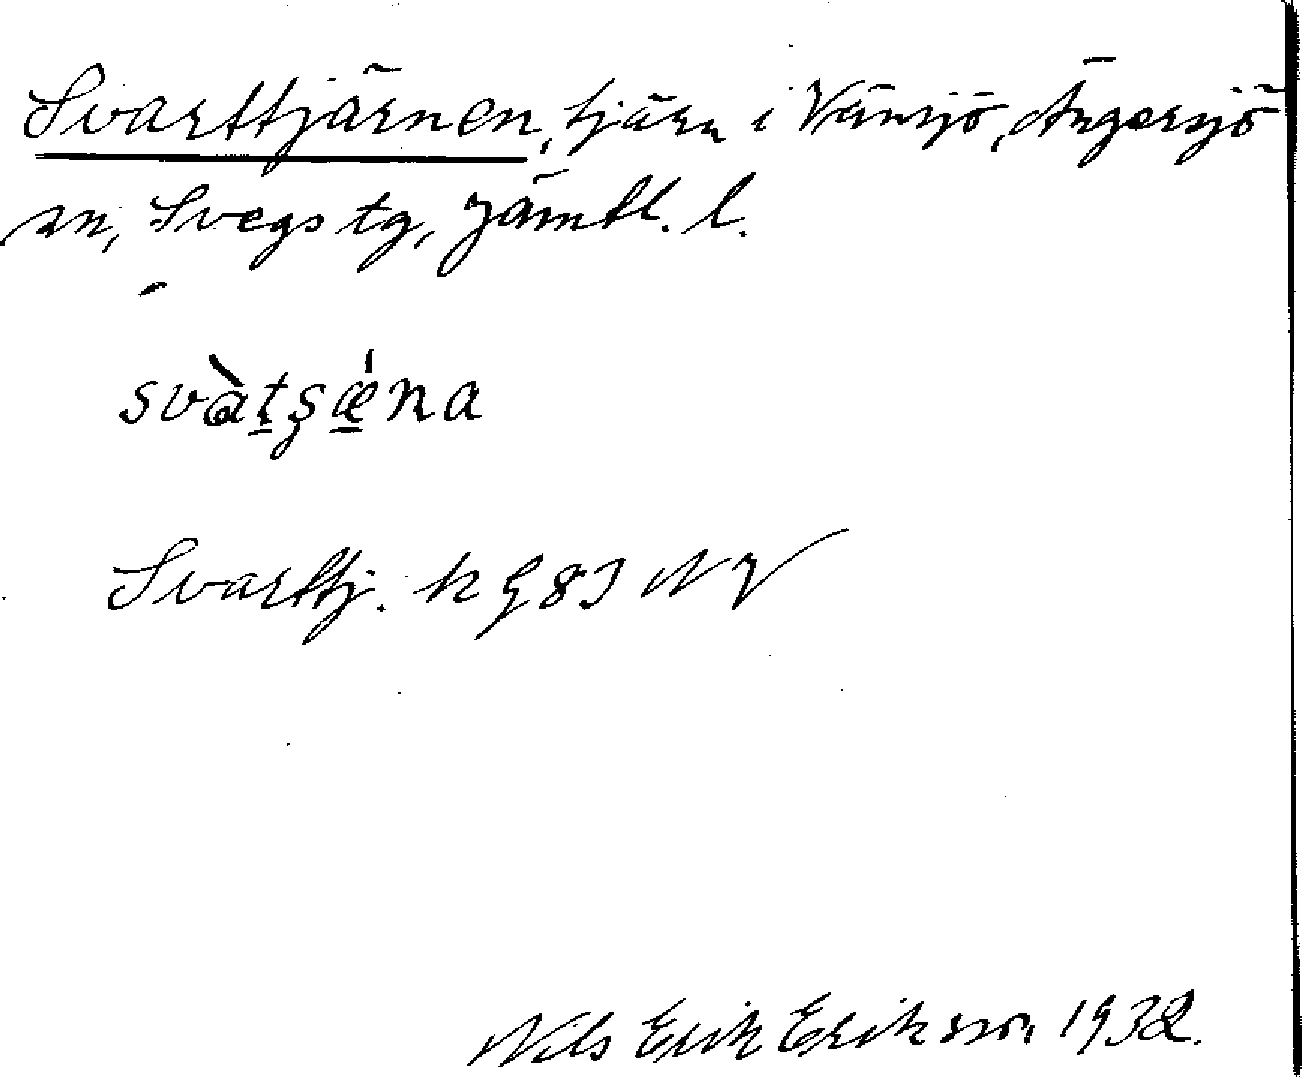 Svarttjärnen, tjärn i Vänsjö, Ängersjö
sn, Svegs tg, Jämtl. l.
svàt̲ʂǽ̲na
Svarttj. k G 83 NV
Nils Erik Eriksson 1932.